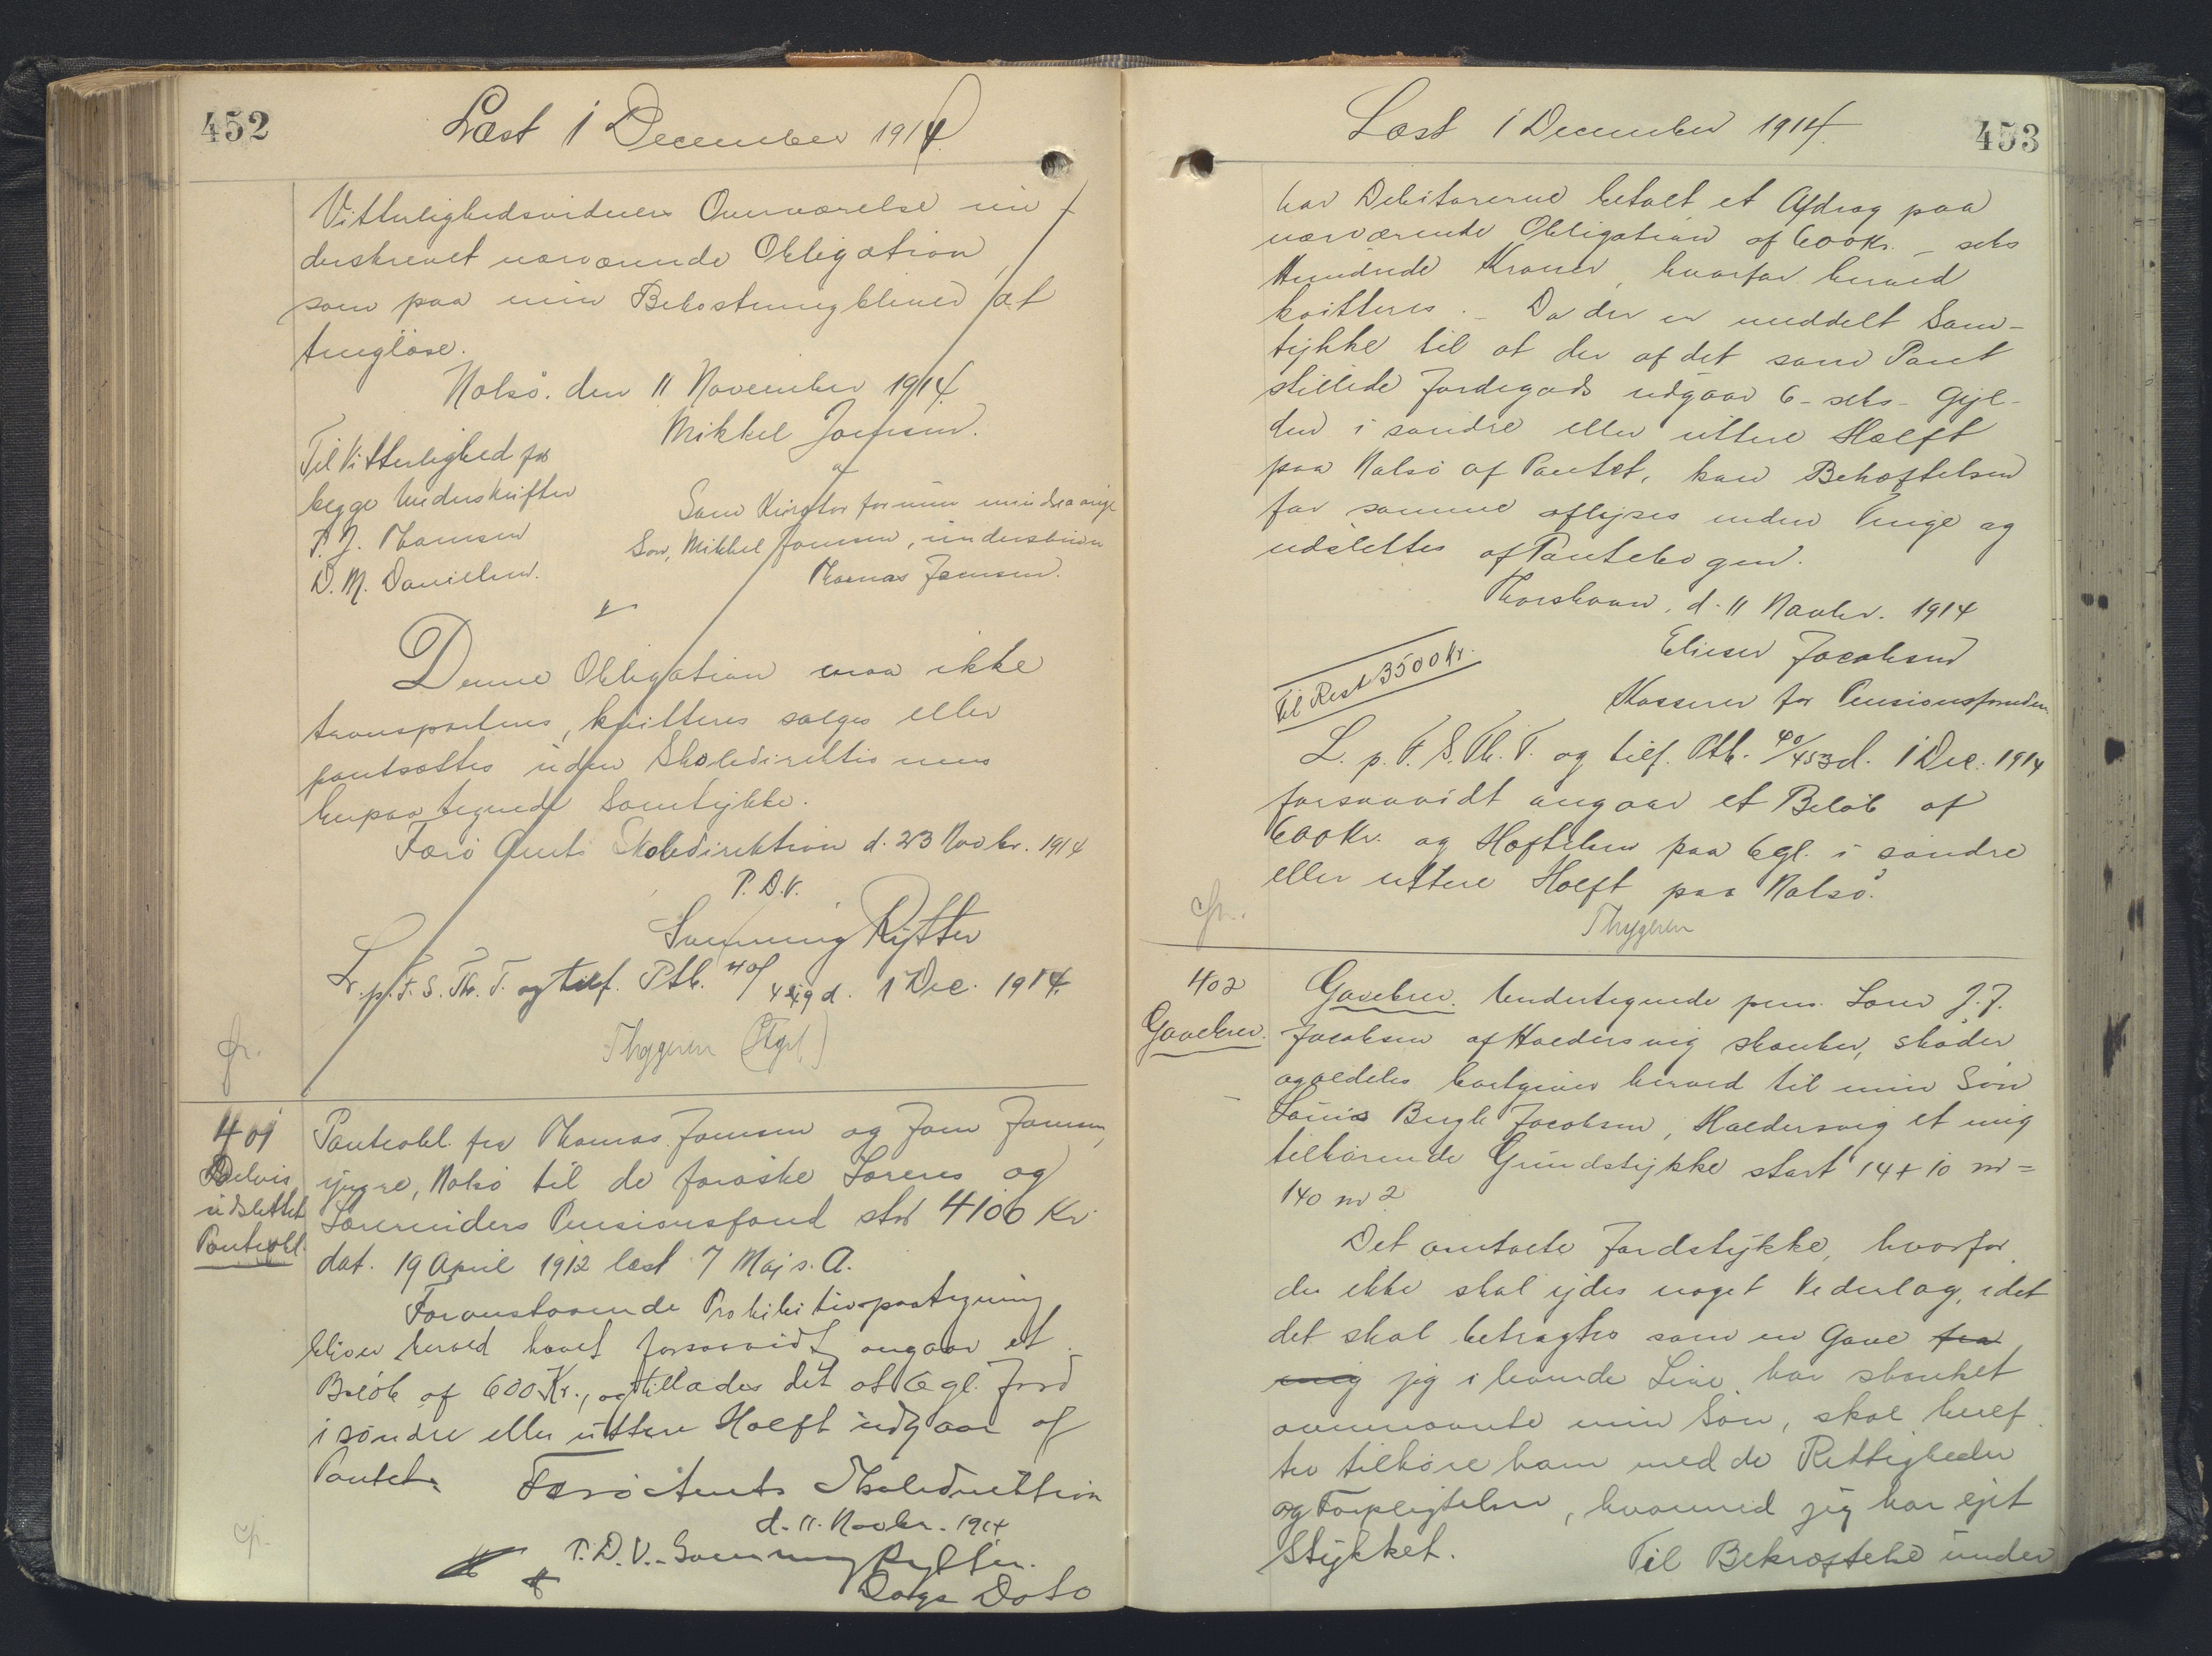 452
Læst 1 December 1914.
Vitterlighedsvidners Overværelse un-
derskrevet nærværende Obligation,
som paa min Bekostning bliver at
tinglöse.
Nolsö. den 11 November 1914.
Mikkel Joensen.
Til Vitterlighed for
begge Underskrifter
P. J. Thomsen
D. M. Danielsen.
Som Kurator for min mindreaarige
Sön, Mikkel Joensen, underskriver
Thomas Joensen.
Denne Obligation maa ikke
transporteres, kvitteres sælges eller
pantsættes uden Skoledirektionens
herpaa tegnede Samtykke.
Færö Amts Skoledirektion d. 23 Novbr. 1914
P. D. V.
Svenning Rytter
L. p. F. S. Th. T. og tilf. Ptb. 40/449 d. 1 Dec. 1914.
Thygesen
cfr.
401
Delvis
udslettet
Pantobl.
Pantobl. fra Thomas Joensen og Joen Joensen,
yngre, Nolsö til de færöske Læreres og
Lærerinders Pensionsfond stor 4100 Kr.
dat. 19 April 1912 læst 7 Maj s. A.
Foranstaaende Prohibitivpaategning
bliver herved hævet forsaavidt angaar et
Beløb af 600 Kr., og tillades det at 6 gl. Jord
i søndre eller uttere Hælft udgaar af
Pantet.
Færö Amts Skoledirektion
d. 11. Novbr. 1914
P. D. V. Svenning Rytter.
Dags Dato
453
Læst 1 December 1914.
har Debitorerne betalt et Afdrag paa
nærværende Obligation af 600 Kr. – seks
Hundrede Kroner, hvorfor herved
kvitteres. – Da der er meddelt Sam-
tykke til at der af det som Pant
stillede Jordegods udgaar 6 – seks – Gyl-
den i söndre eller uttere Hælft
paa Nolsö af Pantet, kan Behæftelsen
for samme aflyses inden Tinge og
udslettes af Pantebogen.
Thorshavn, d. 11 Novbr. 1914
Elieser Jacobsen
Kasserer for Pensionsfonden
Til Rest 3500 Kr.
L. p. F. S. Th. T. og tilf. Ptb. 40/453 d. 1 Dec. 1914
forsaavidt angaar et Belöb af
600 Kr. og Hæftelsen paa 6 gl. i söndre
eller uttere Hælft paa Nolsö.
Thygesen
cfr.
402
Gavebrev.
Gavebrev. Undertegnede pens. Lærer J. J.
Jacobsen af Haldersvig skænker, sköder
og aldeles bortgiver herved til min Sön
Louis Bergh Jacobsen, Haldersvig et mig
tilhörende Grundstykke stort 14 + 10 m =
140 m2
Det omtalte Jordstykke, hvorfor
der ikke skal ydes noget Vederlag, idet
det skal betragtes som en Gave fra
mig jeg i levende Live har skænket
ovennævnte min Sön, skal heref-
ter tilhöre ham med de Rettigheder
og Forpligtelser, hvormed jeg har ejet
Stykket.
Til Bekræftelse under